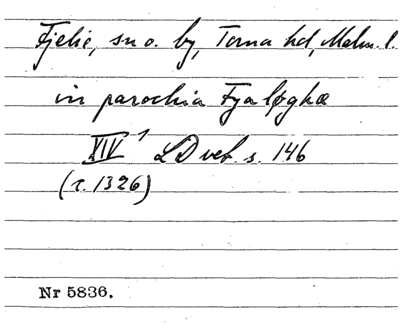 Fjelie, sn o. by, Torna hd, Malm. l.
in parochia Fyaløghæ
XIV 1 LDvet. s. 146
(c. 1326)
Nr 5836.